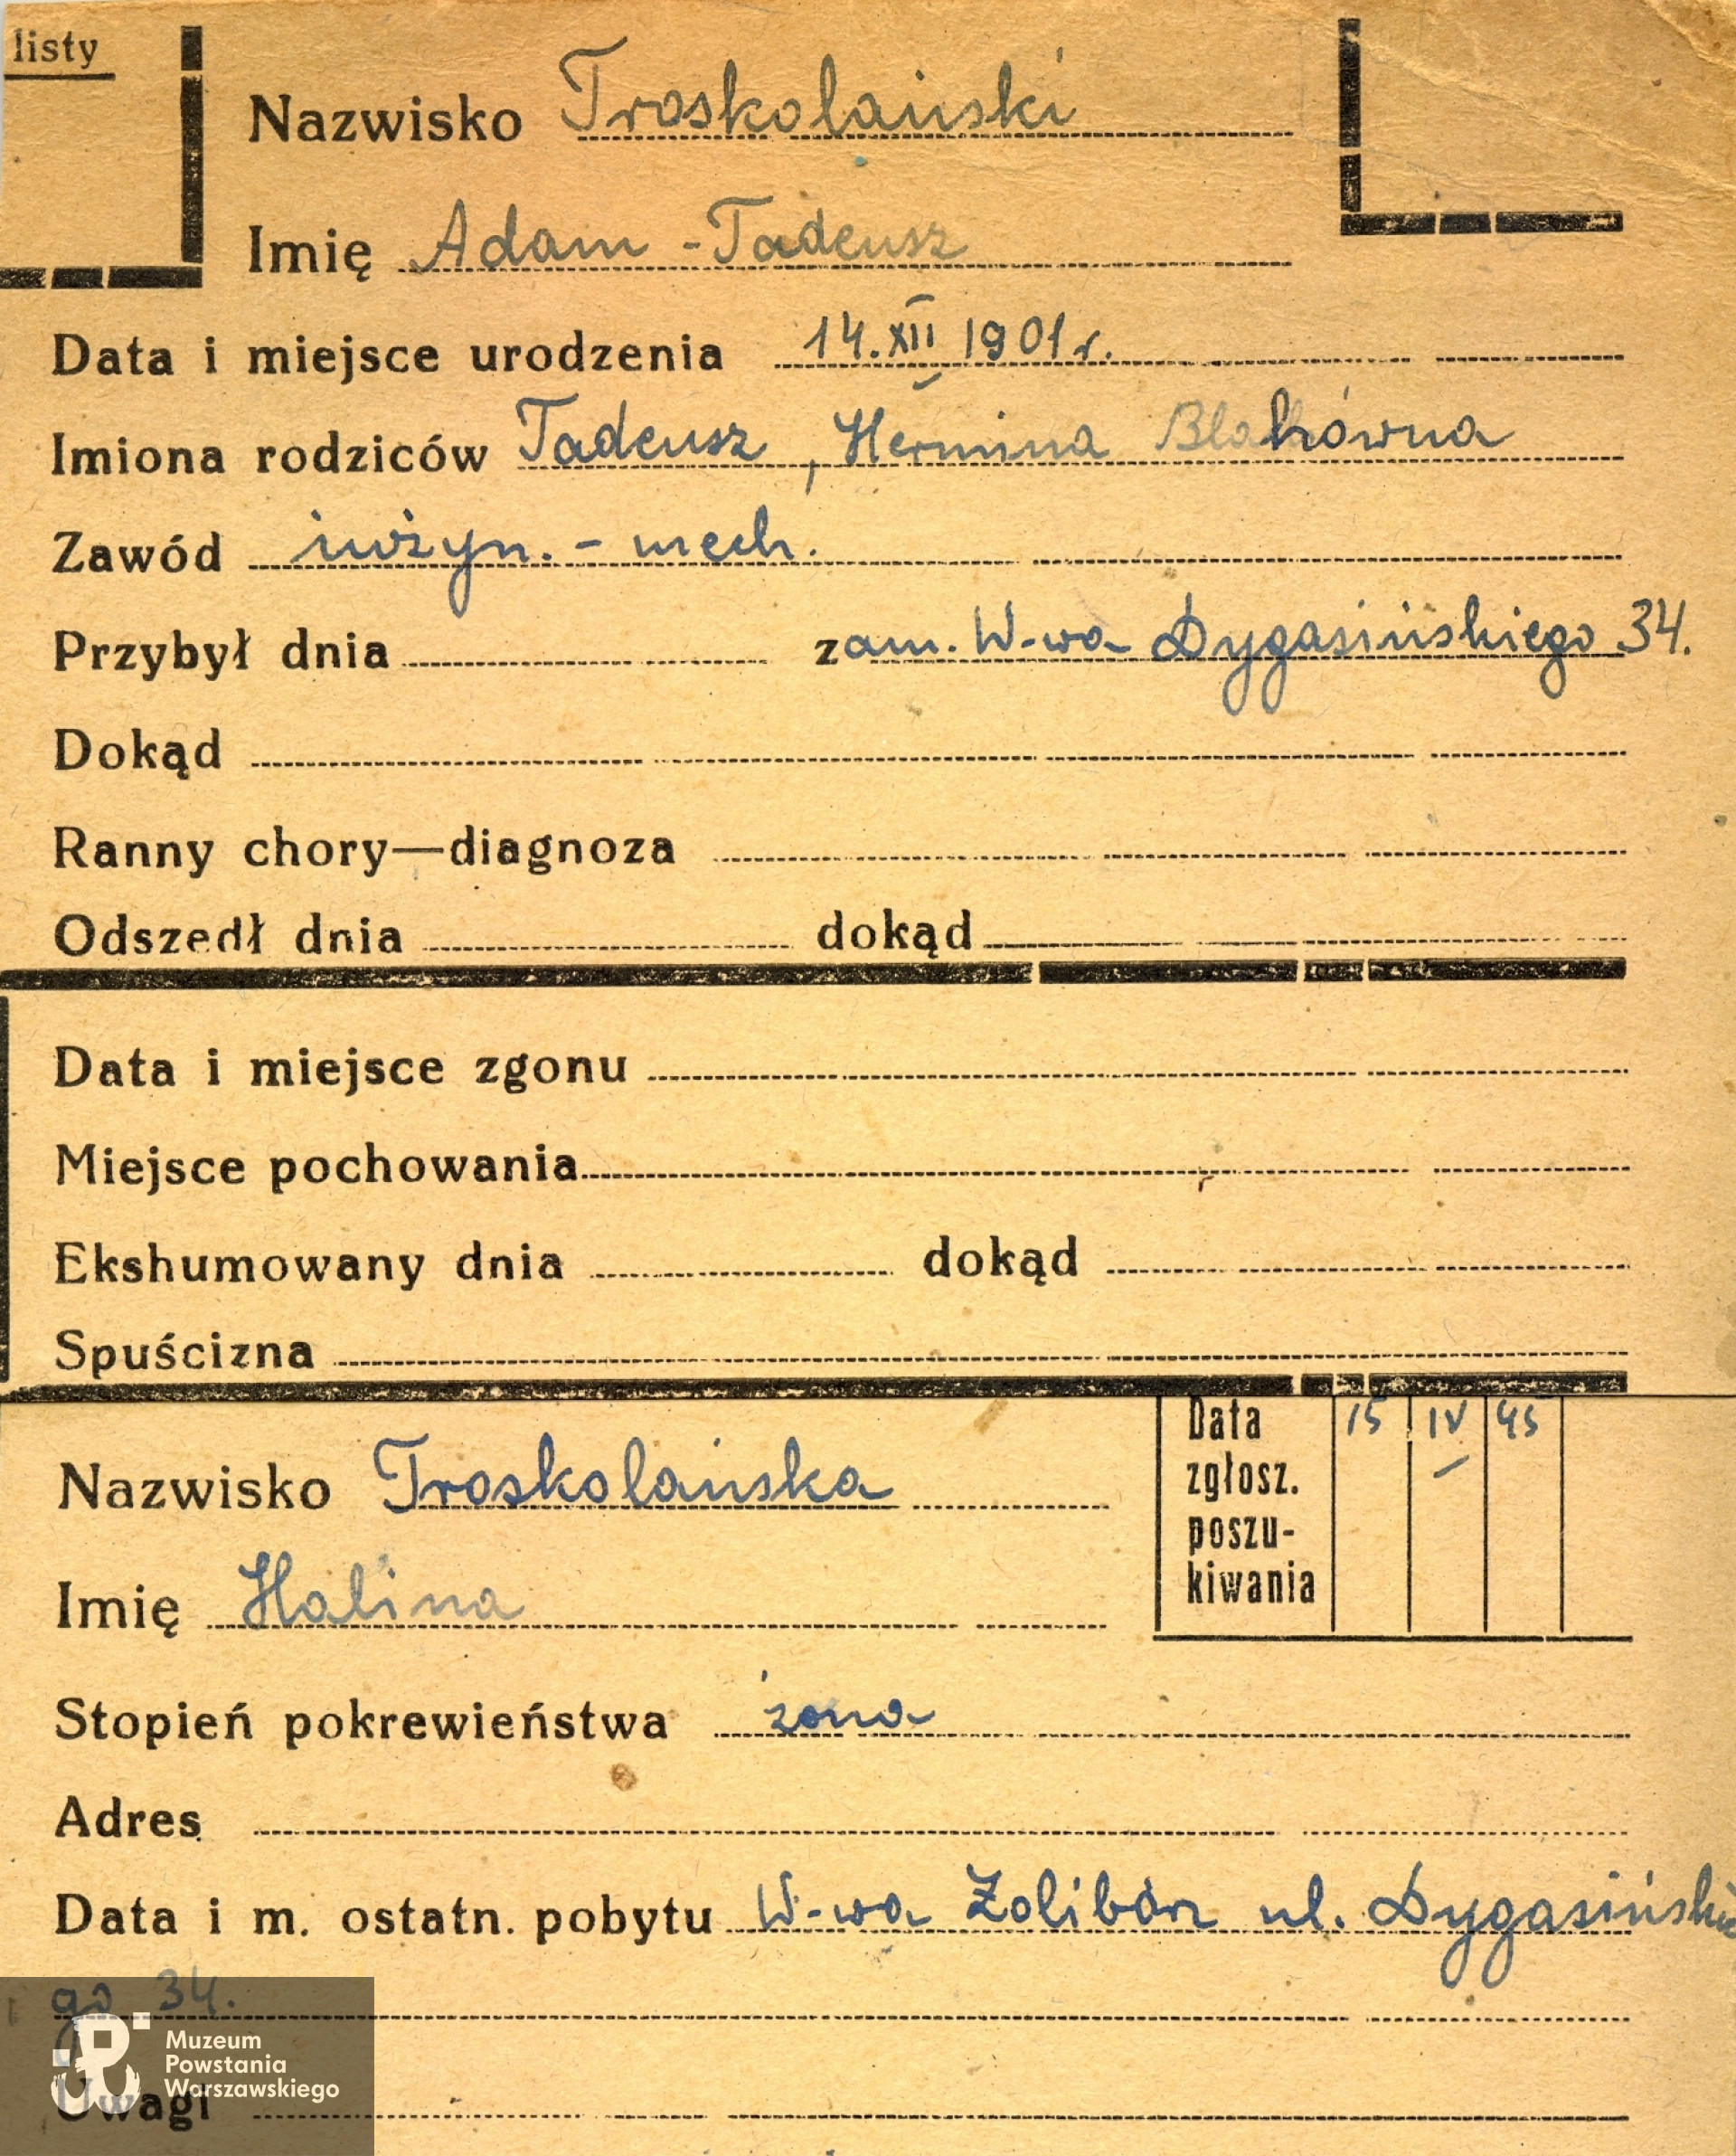 listy
Nazwisko Troskolański
Imię Adam - Tadeusz
Data i miejsce urodzenia 14. XII 1901 r.
Imiona rodziców Tadeusz, Hermina
Zawód inżyn. - mech.
Przybył dnia zam. W-wa Dygasińskiego 34.
Dokąd
Ranny chory—diagnoza
Odszedł dnia dokąd
Data i miejsce zgonu
Miejsce pochowania
Ekshumowany dnia dokąd
Spuścizna
Data zgłosz. poszu-kiwania 15 IV 45
Nazwisko Troskolańska
Imię Halina
Stopień pokrewieństwa żona
Adres
Data i m. ostatn. pobytu W-wa Żolibórz ul. Dygasińskie
go 34.
Uwagi
Muzeum
Powstania
Warszawskiego